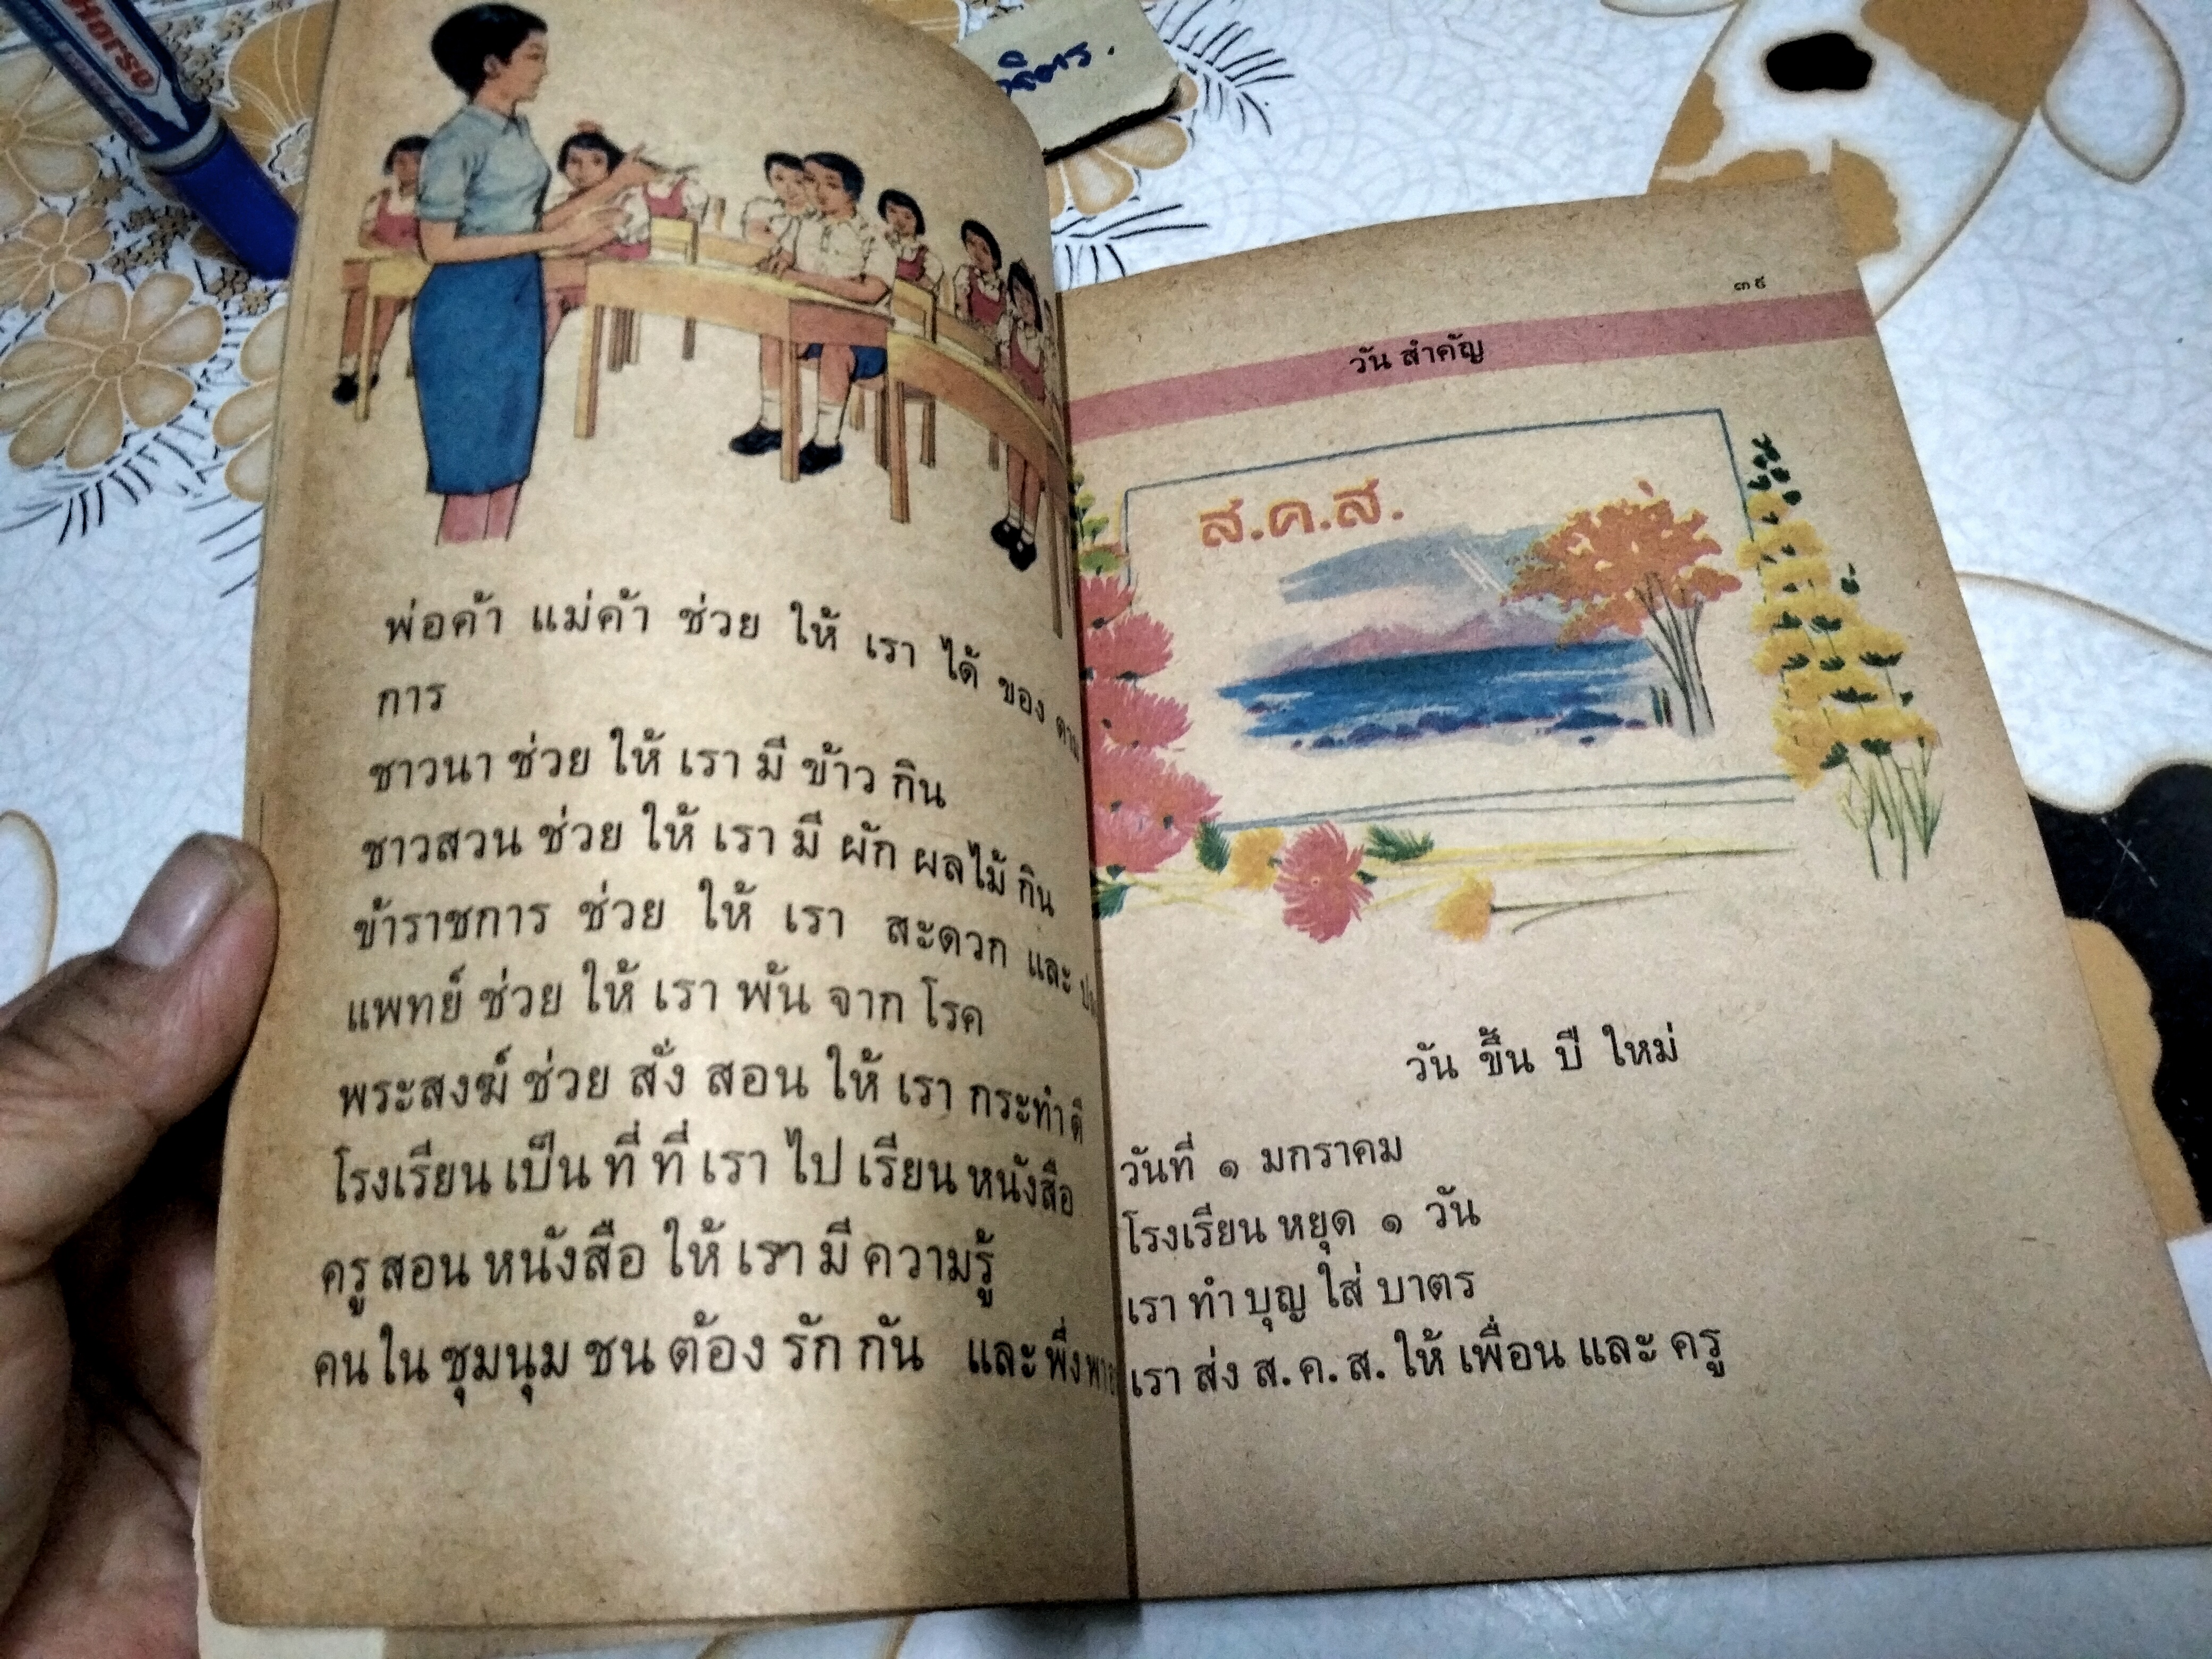 Horse
พ่อค้า แม่ค้า ช่วย ให้ เรา ได้ ของ
การ
ชาวนา ช่วย ให้ เรา มี ข้าว กิน
ชาวสวน ช่วย ให้ เรา มี ผัก ผลไม้ กิน
ข้าราชการ ช่วย ให้ เรา สะดวก และ
แพทย์ ช่วย ให้ เรา พ้น จาก โรค
พระสงฆ์ ช่วย สั่ง สอน ให้ เรา กระทำ ดี
โรงเรียน เป็น ที่ ที่ เรา ไป เรียน หนังสือ
ครู สอน หนังสือ ให้ เรา มี ความรู้
คน ใน ชุมนุม ชน ต้อง รัก กัน และ
๓๙
วัน สำคัญ
ส.ค.ส.
วัน ขึ้น ปี ใหม่
วันที่ ๑ มกราคม
โรงเรียน หยุด ๑ วัน
เรา ทำ บุญ ใส่ บาตร
เรา ส่ง ส.ค.ส. ให้ เพื่อน และ ครู